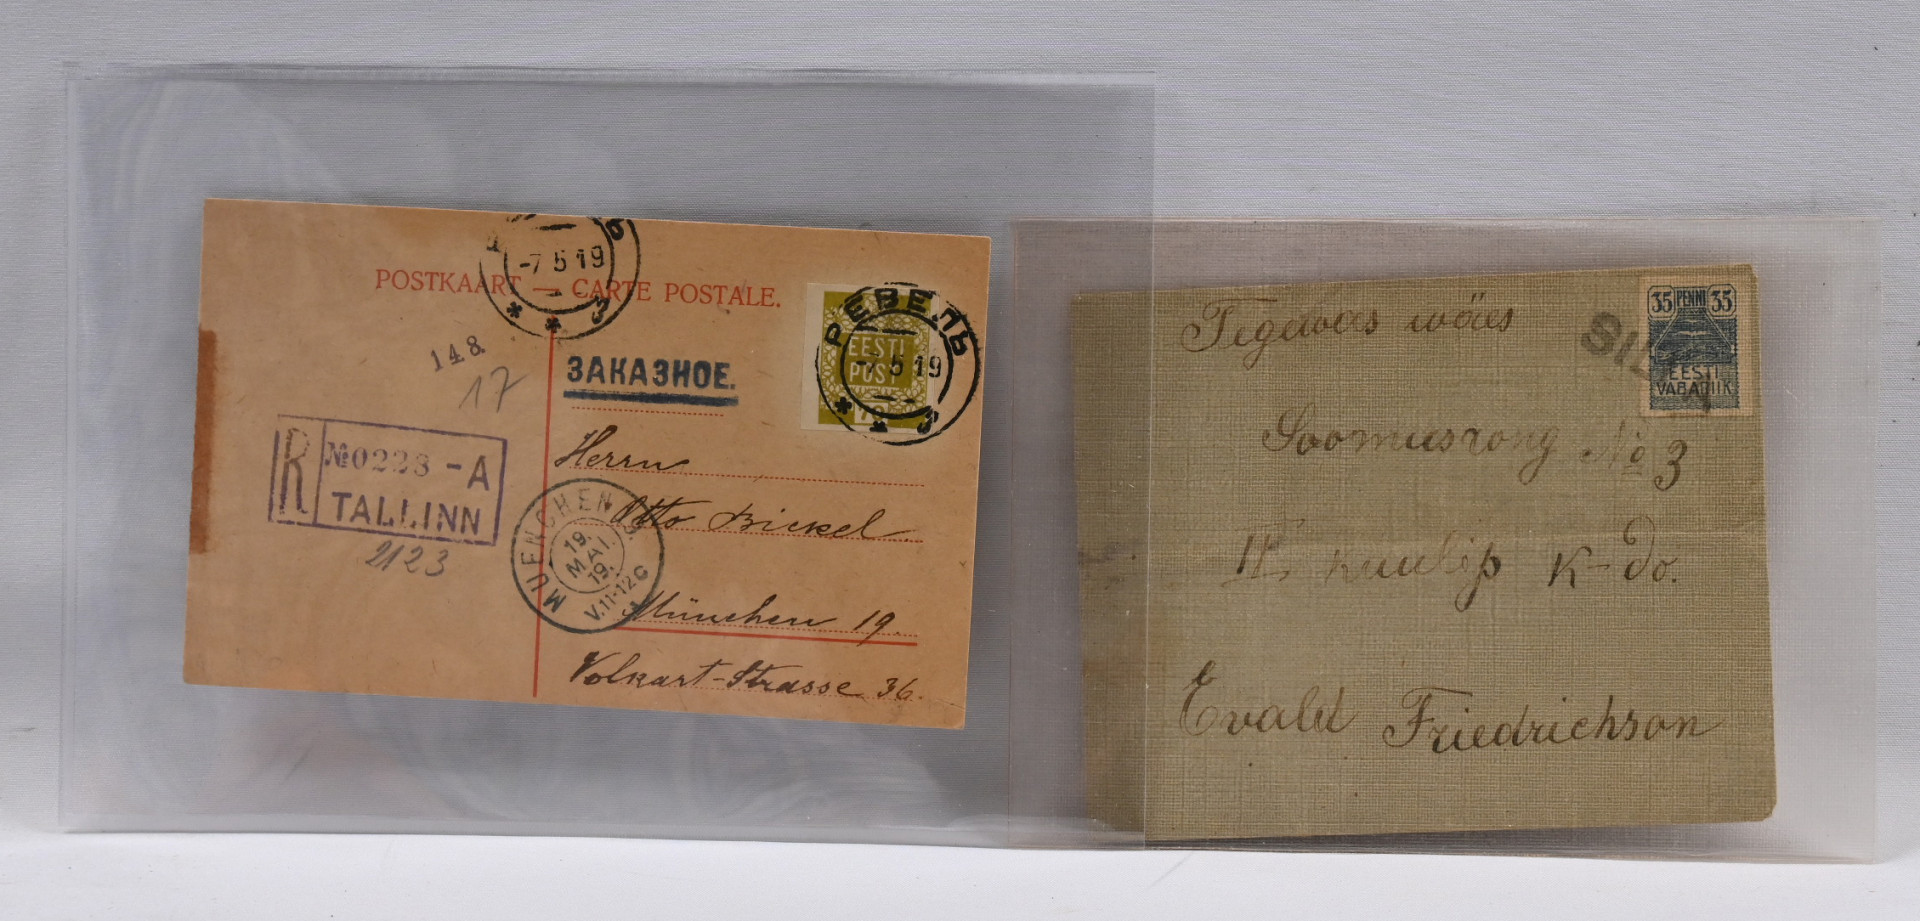 POSTKAART — CARTE POSTALE.
-7 5 19
* * 3
РЕВЕЛЬ
-7 5 19
* * 3
EESTI
POST
148
17
ЗАКАЗНОЕ.
R
№0228-A
TALLINN
2123
Herrn
Otto Bickel.
MUENCHEN
19.
MAI.
19.
V.11-12
München 19.
Volkart-Strasse 36.
35 PENNI 35
EESTI
VABARIIK
Tegewas wäes
Soomusrong № 3
K-do.
Evald Friedrichson